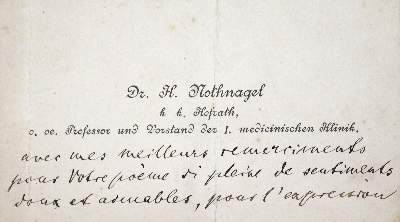 Dr. H. Nothnagel
k. k. Hofrath,
o. oe. Professor und Vorstand der I. medicinischen Klinik.
avec mes meilleurs remerciments
pour Votre poème si pleine de sentiments
doux et aimables, pour l'expression